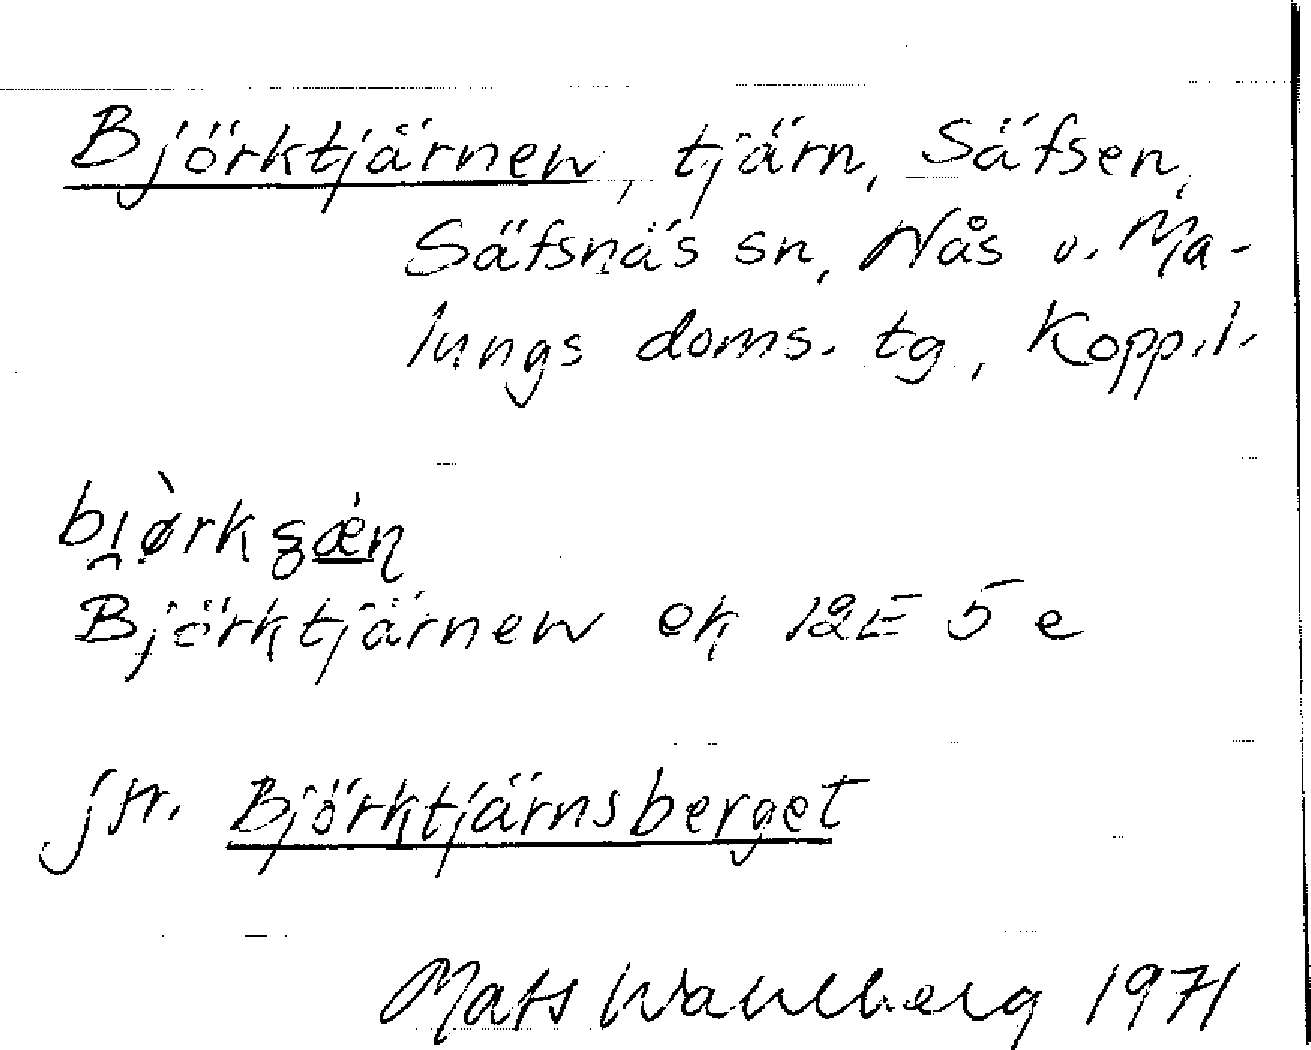 Björktjärnen, tjärn, Säfsen,
Säfsnäs sn, Nås o. Ma-
lungs doms. tg, Kopp.l.
Björktjärnen ek 12E 5e
jfr. Björktjärnsberget
Mats Wahlberg 1971